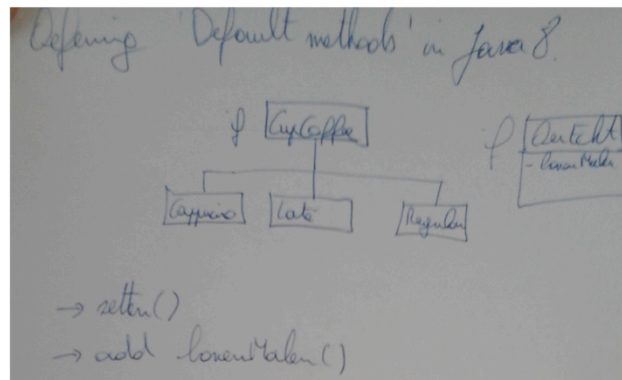 Defining 'Default methods' in Java 8.
CupCoffee
Cappucino
Late
Regular
→ setter()
→ add bonenMalen()